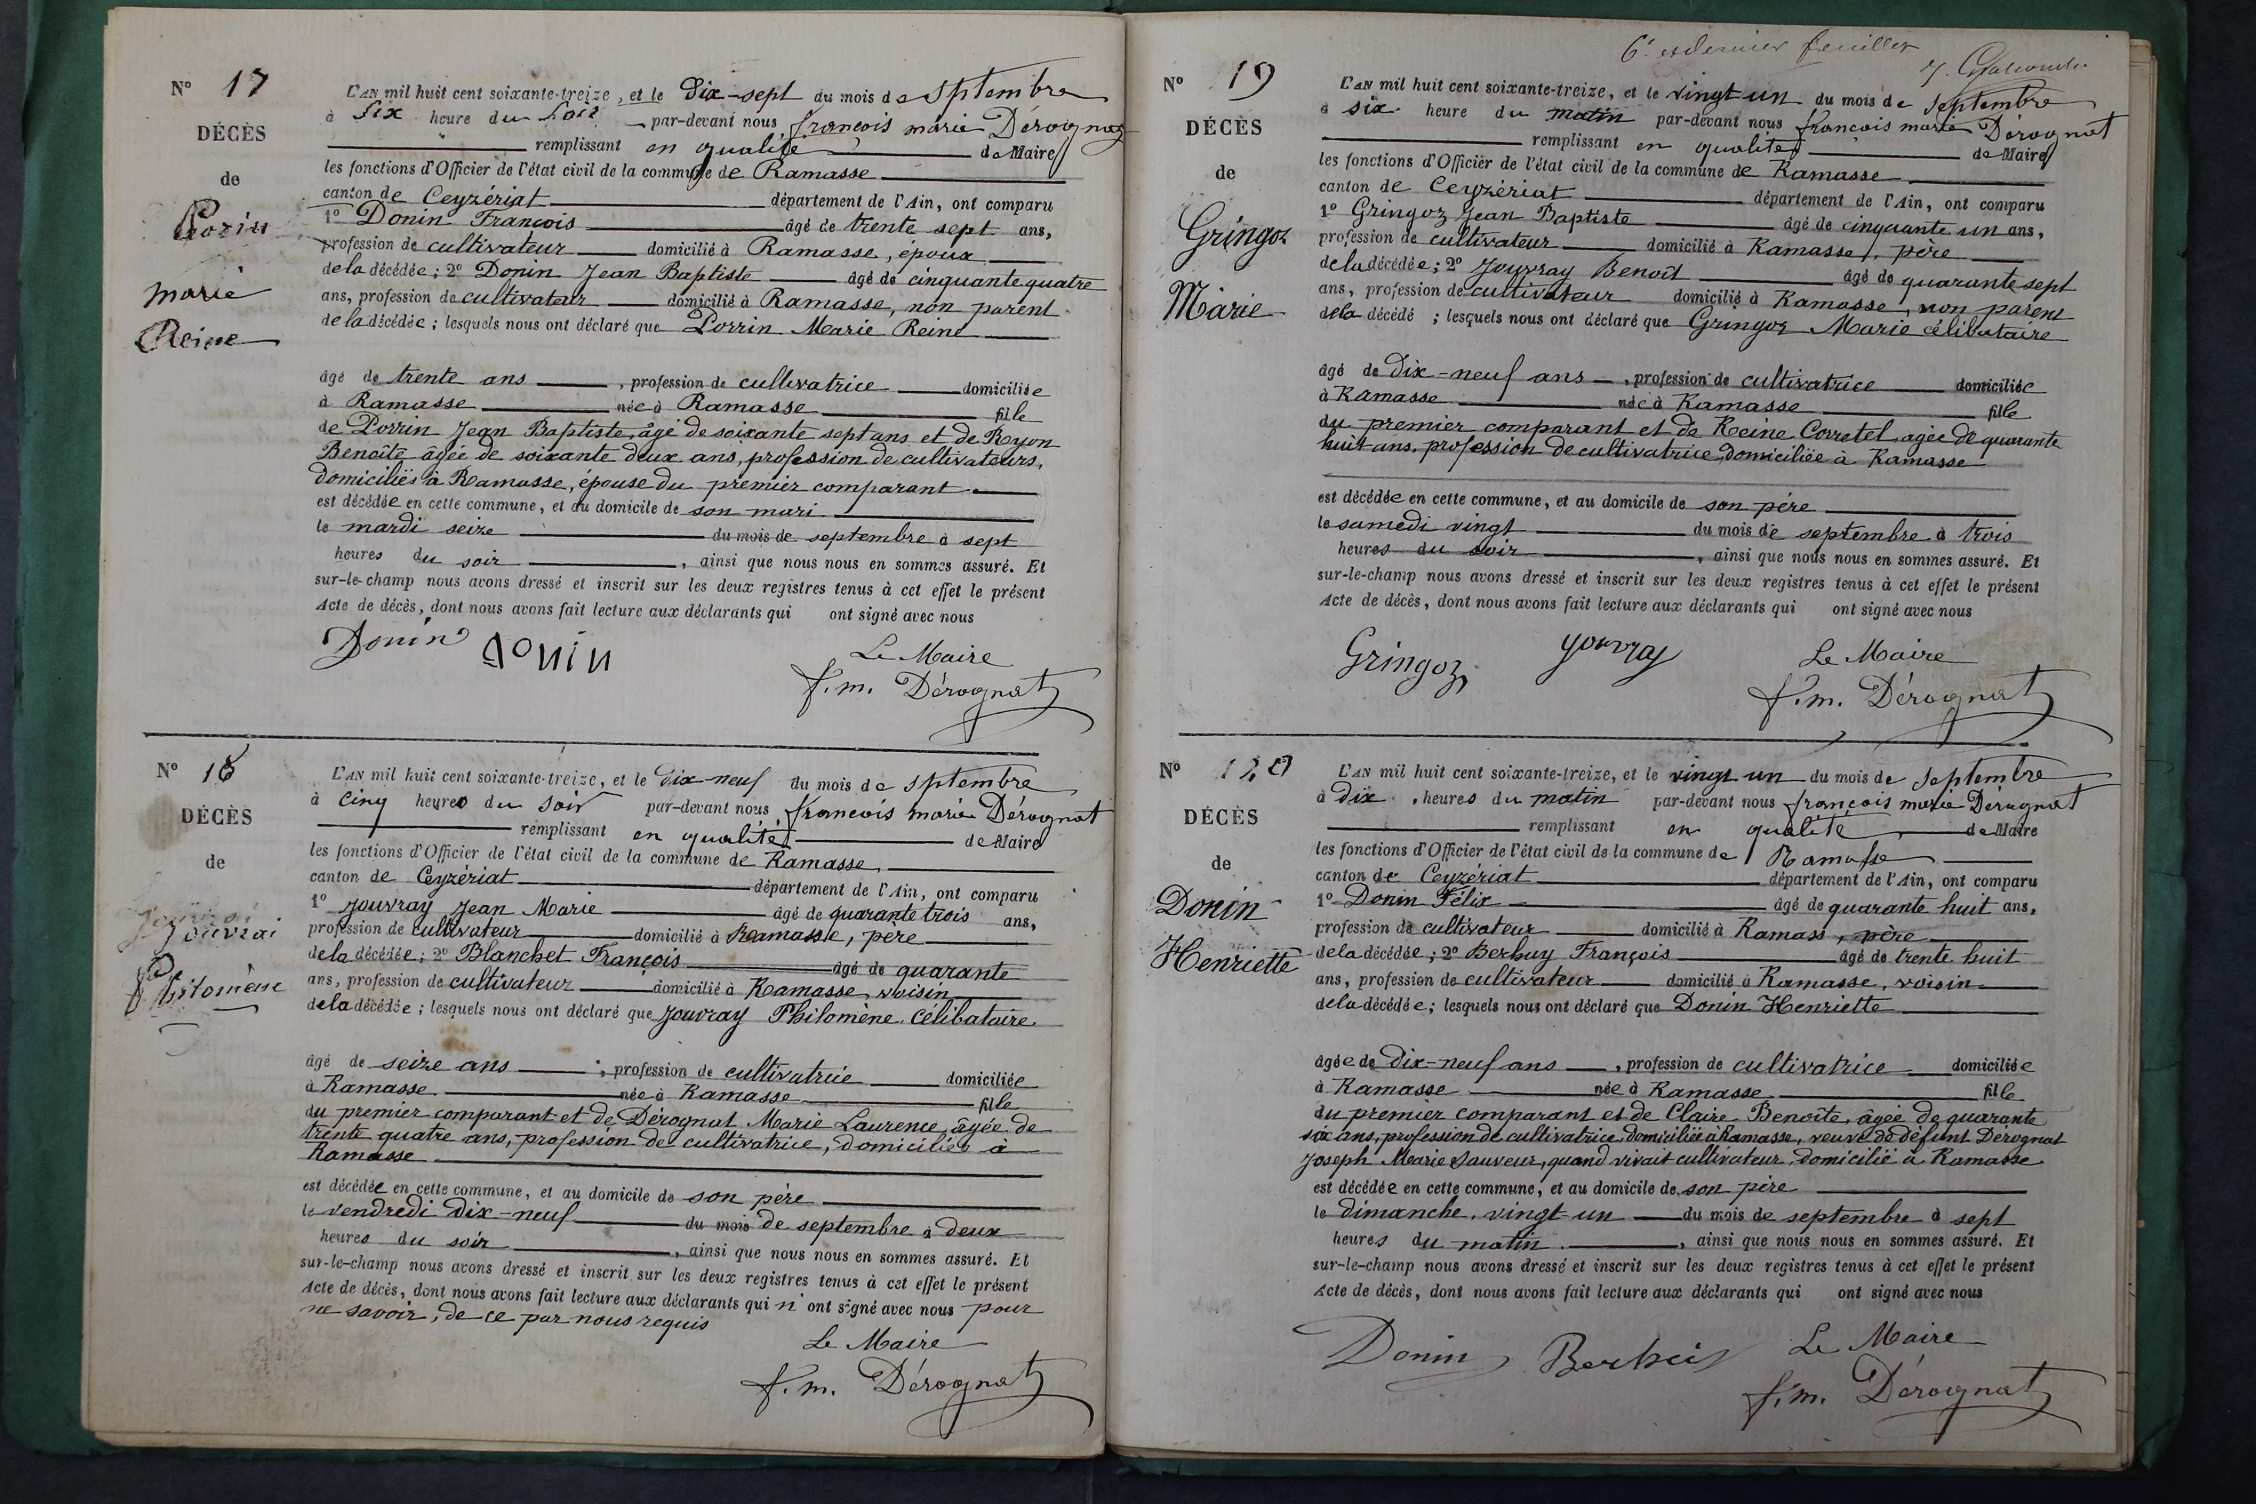 N° 17
DÉCÈS
de
Porrin
marie
Reine
L'AN mil huit cent soixante-treize, et le Dix-sept du mois de sptembre
à six heure du soir par-devant nous françois marie Dérognat
remplissant en qualité de Maire
les fonctions d'Officier de l'état civil de la commune de Ramasse
canton de Ceyzériat département de l'Ain, ont comparu
1° Donin François âgé de trente sept ans,
profession de cultivateur domicilié à Ramasse, époux
de la décédée; 2° Donin Jean Baptiste âgé de cinquante quatre
ans, profession de cultivateur domicilié à Ramasse, non parent
de la décédée; lesquels nous ont déclaré que Porrin Marie Reine
âgé de trente ans, profession de cultivatrice domiciliée
à Ramasse née à Ramasse fille
de Porrin Jean Baptiste, âgé de soixante sept ans et de Reyon
Benoîte âgée de soixante deux ans, profession de cultivateurs,
domiciliés à Ramasse, épouse du premier comparant
est décédée en cette commune, et au domicile de son mari
le mardi seize du mois de septembre à sept
heures du soir, ainsi que nous nous en sommes assuré. Et
sur-le-champ nous avons dressé et inscrit sur les deux registres tenus à cet effet le présent
Acte de décès, dont nous avons fait lecture aux déclarants qui ont signé avec nous
Donin donin Le Maire
f. m. Dérognat
N° 18
DÉCÈS
de
Jouvrai
Philomène
L'AN mil huit cent soixante-treize, et le dix-neuf du mois de sptembre
à cinq heures du soir par-devant nous françois marie Dérognat
remplissant en qualité de Maire
les fonctions d'Officier de l'état civil de la commune de Ramasse
canton de Ceyzériat département de l'Ain, ont comparu
1° Jouvray Jean Marie âgé de quarante trois ans,
profession de cultivateur domicilié à Ramasse, père
de la décédée; 2° Blanchet François âgé de quarante
ans, profession de cultivateur domicilié à Ramasse, voisin
de la décédée; lesquels nous ont déclaré que Jouvray Philomène célibataire
âgé de seize ans, profession de cultivatrice domiciliée
à Ramasse née à Ramasse fille
du premier comparant et de Dérognat Marie Laurence, âgée de
trente quatre ans, profession de cultivatrice, domiciliée à
Ramasse
est décédée en cette commune, et au domicile de son père
le vendredi dix-neuf du mois de septembre à deux
heures du soir, ainsi que nous nous en sommes assuré. Et
sur-le-champ nous avons dressé et inscrit sur les deux registres tenus à cet effet le présent
Acte de décès, dont nous avons fait lecture aux déclarants qui n'ont signé avec nous pour
ne savoir, de ce par nous requis
Le Maire
f. m. Dérognat
6e et dernier feuillet
N° 19
DÉCÈS
de
Gringoz
Marie
L'AN mil huit cent soixante-treize, et le vingt un du mois de septembre
à six heure du matin par-devant nous françois marie Dérognat
remplissant en qualité de Maire
les fonctions d'Officier de l'état civil de la commune de Ramasse
canton de Ceyzériat département de l'Ain, ont comparu
1° Gringoz Jean Baptiste âgé de cinquante un ans,
profession de cultivateur domicilié à Ramasse, père
de la décédée; 2° Jouvray Benoît âgé de quarante sept
ans, profession de cultivateur domicilié à Ramasse, non parent
de la décédé; lesquels nous ont déclaré que Gringoz Marie célibataire
âgé de Dix-neuf ans, profession de cultivatrice domiciliée
à Ramasse née à Ramasse fille
du premier comparant et de Reine Corretel agée de quarante
huit ans, profession de cultivatrice, domiciliée à Ramasse
est décédée en cette commune, et au domicile de son père
le samedi vingt du mois de septembre à trois
heures du soir, ainsi que nous nous en sommes assuré. Et
sur-le-champ nous avons dressé et inscrit sur les deux registres tenus à cet effet le présent
Acte de décès, dont nous avons fait lecture aux déclarants qui ont signé avec nous
Gringoz Youvray Le Maire
f. m. Dérognat
N°
DÉCÈS
de
Donin
Henriette
L'AN mil huit cent soixante-treize, et le vingt un du mois de septembre
à dix heures du matin par-devant nous françois marie Dérognat
remplissant en qualité de Maire
les fonctions d'Officier de l'état civil de la commune de Ramasse
canton de Ceyzériat département de l'Ain, ont comparu
1° Donin Félix âgé de quarante huit ans,
profession de cultivateur domicilié à Ramass, père
de la décédée; 2° Berhuy François âgé de trente huit
ans, profession de cultivateur domicilié à Ramasse, voisin
de la décédée; lesquels nous ont déclaré que Donin Henriette
âgée de Dix-neuf ans, profession de cultivatrice domiciliée
à Ramasse née à Ramasse fille
du premier comparant et de Claire Benoîte, âgée de quarante
six ans, profession de cultivatrice, domiciliée à Ramasse, veuve de défunt Dérognat
Joseph Marie Sauveur, quand vivait cultivateur domicilié à Ramasse
est décédée en cette commune, et au domicile de son père
le dimanche, vingt-un du mois de septembre à sept
heures du matin, ainsi que nous nous en sommes assuré. Et
sur-le-champ nous avons dressé et inscrit sur les deux registres tenus à cet effet le présent
Acte de décès, dont nous avons fait lecture aux déclarants qui ont signé avec nous
Donin Le Maire
f. m. Dérognat